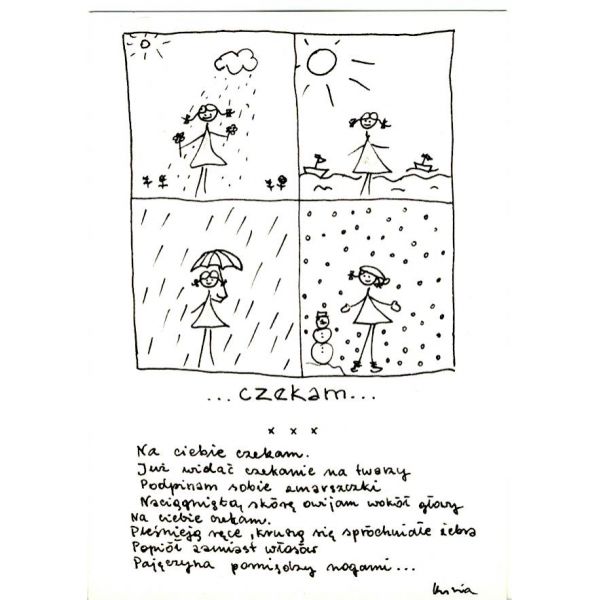 ...czekam...
x x x
Na ciebie czekam.
Już widać czekanie na twarzy
Podpinam sobie zmarszczki
Naciągniętą skórę owijam wokół głowy
Na ciebie czekam.
Pleśnieją ręce, kruszą się spróchniałe żebra
Popiół zamiast włosów
Pajęczyna pomiędzy nogami...